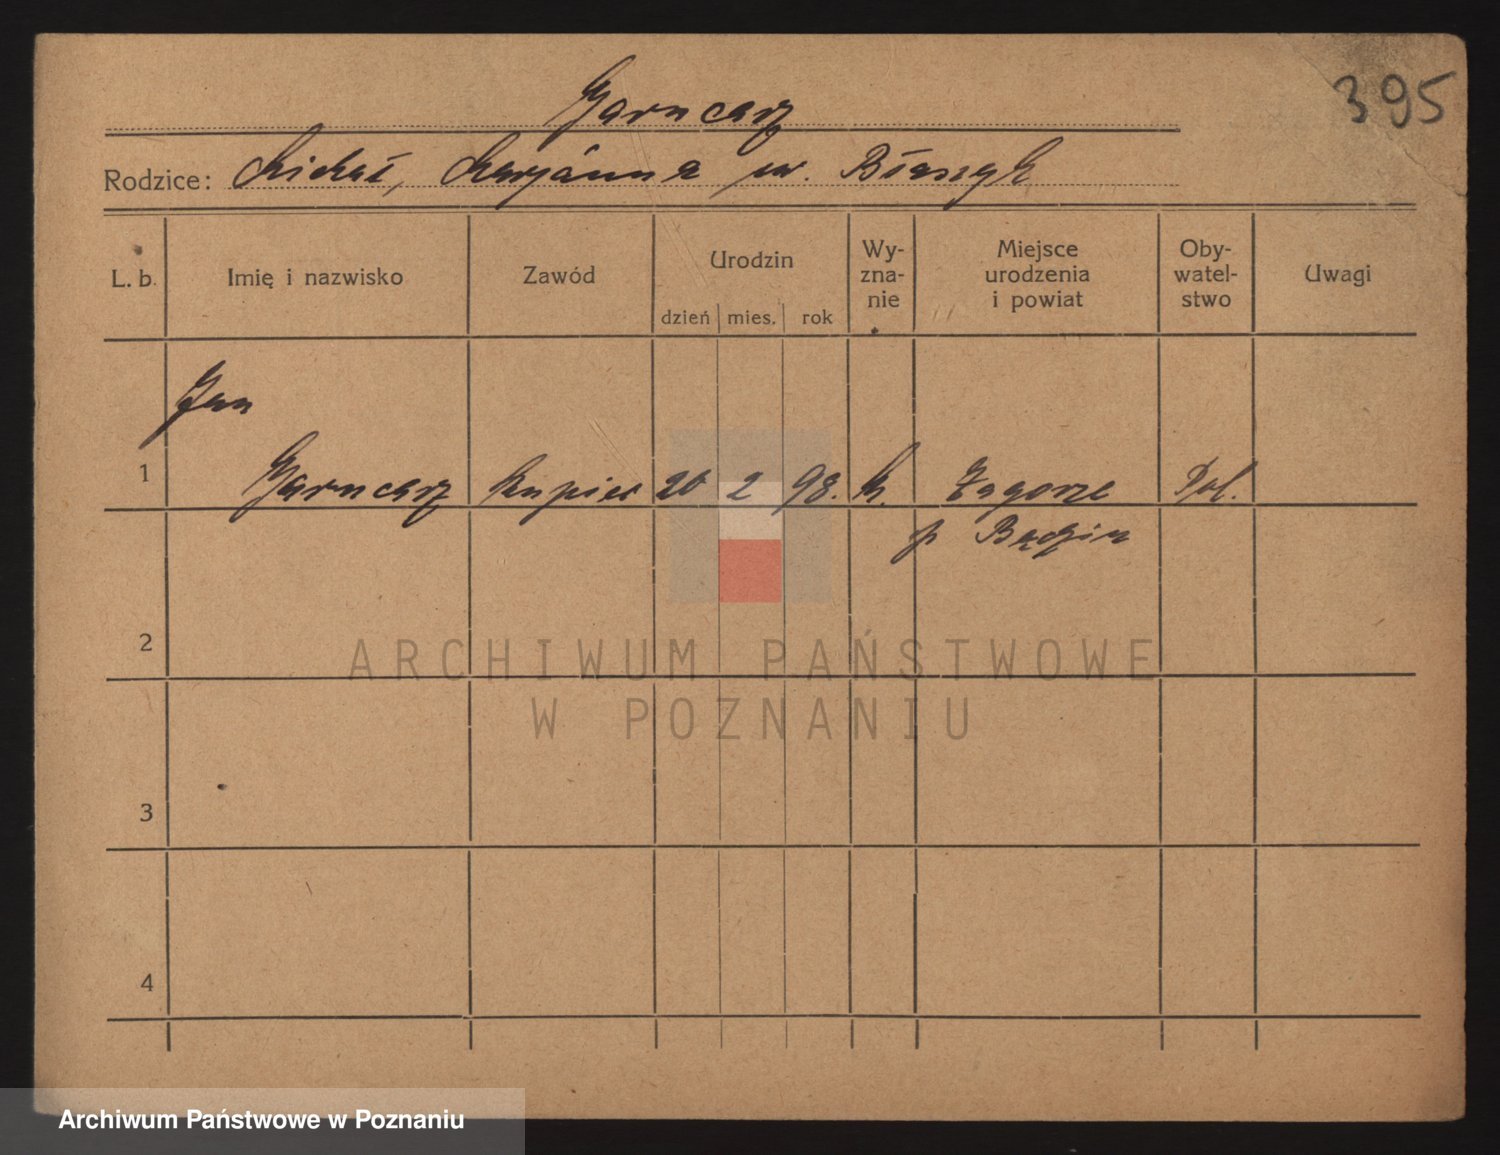 395
Garncarz
Rodzice: Michał, Marjanna ur. Błaszyk
L. b.
Imię i nazwisko
Zawód
Urodzin
dzień mies. rok
Wy-
zna-
nie
Miejsce
urodzenia
i powiat
Oby-
watel-
stwo
Uwagi
Jan
1 Garncarz Kupiec 20 2 98. k. Zagorze Pol.
p Będzin
2
3
4
ARCHIWUM PAŃSTWOWE
W POZNANIU
Archiwum Państwowe w Poznaniu